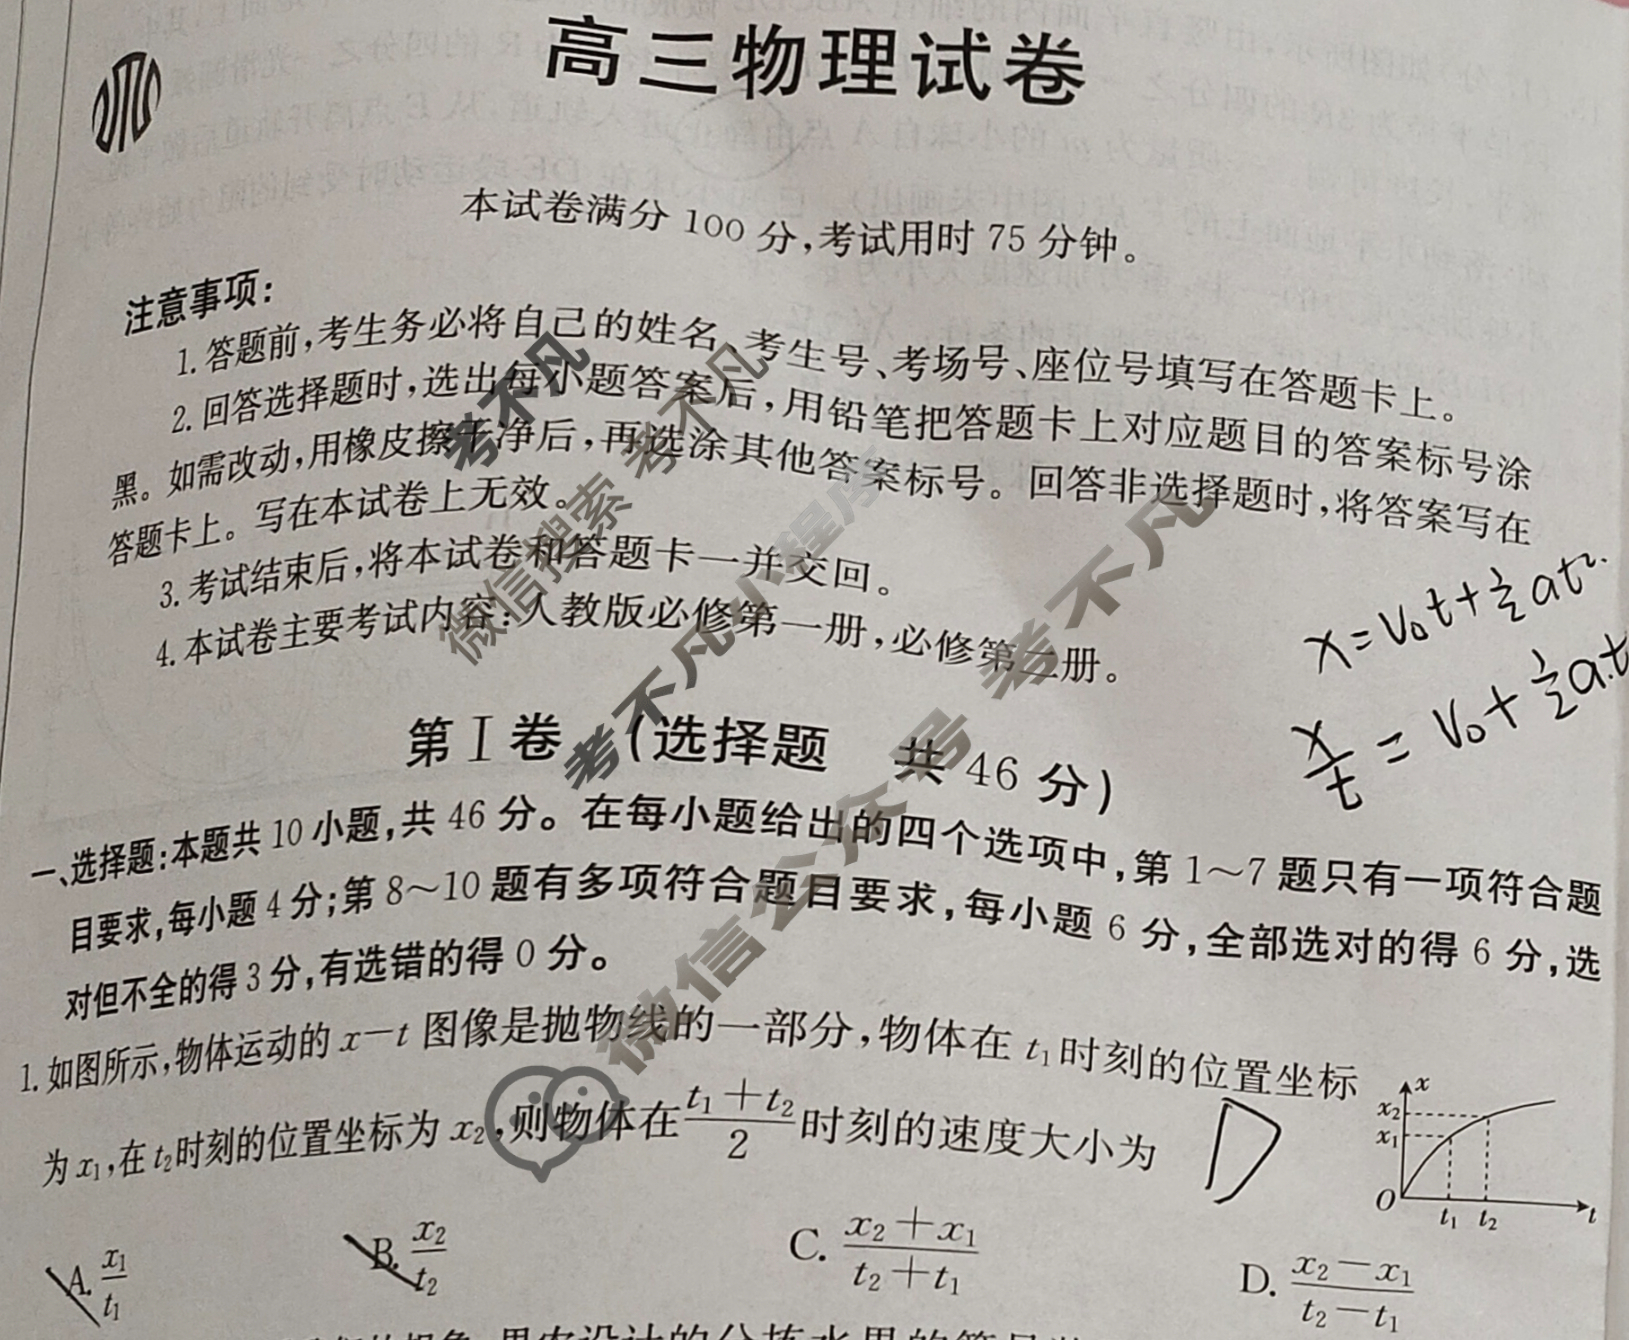 高三物理试卷
本试卷满分100分,考试用时75分钟。
注意事项:
1.答题前,考生务必将自己的姓名、考生号、考场号、座位号填写在答题卡上。
2.回答选择题时,选出每小题答案后,用铅笔把答题卡上对应题目的答案标号涂
黑。如需改动,用橡皮擦干净后,再选涂其他答案标号。回答非选择题时,将答案写在
答题卡上。写在本试卷上无效。
3.考试结束后,将本试卷和答题卡一并交回。
4.本试卷主要考试内容:人教版必修第一册,必修第二册。
x=v₀t+½at².
x/t=v₀+½a.t
第Ⅰ卷 (选择题 共46分)
一、选择题:本题共10小题,共46分。在每小题给出的四个选项中,第1~7题只有一项符合题
目要求,每小题4分;第8~10题有多项符合题目要求,每小题6分,全部选对的得6分,选
对但不全的得3分,有选错的得0分。
1.如图所示,物体运动的x-t图像是抛物线的一部分,物体在t₁时刻的位置坐标
为x₁,在t₂时刻的位置坐标为x₂,则物体在(t₁+t₂)/2时刻的速度大小为
D
x
x₂
x₁
O
t₁ t₂ t
A. x₁/t₁ B. x₂/t₂ C. (x₂+x₁)/(t₂+t₁) D. (x₂-x₁)/(t₂-t₁)
考不凡
微信搜索 考不凡
考不凡小程序
微信公众号 考不凡